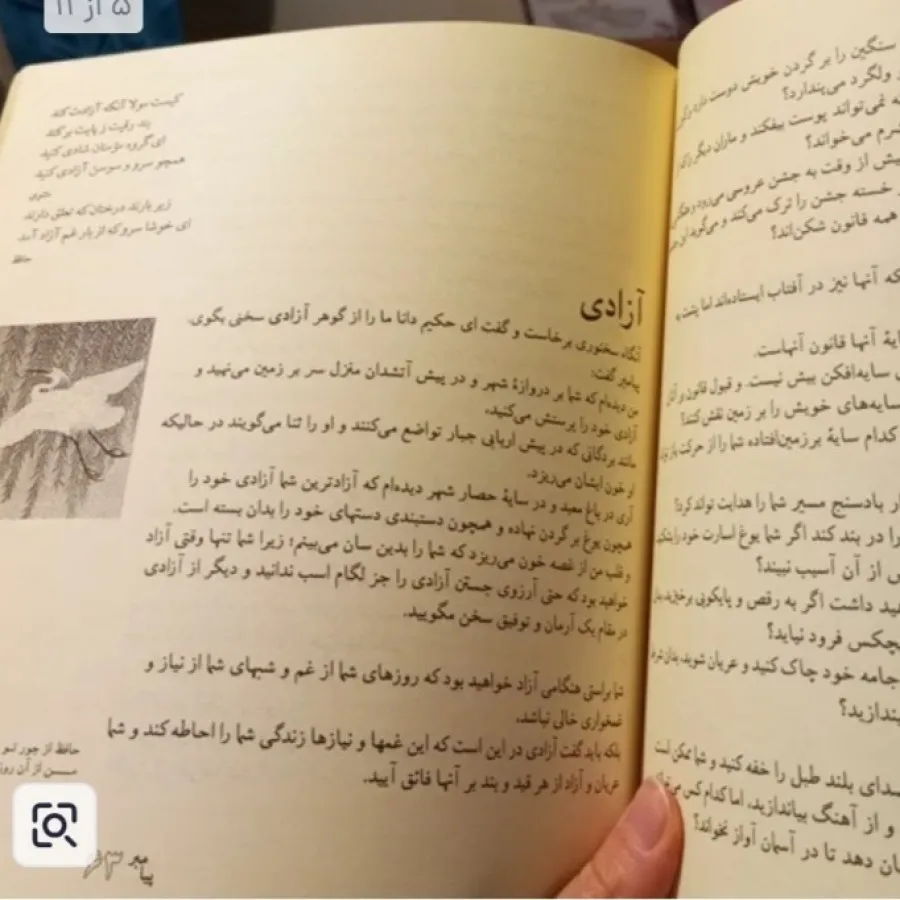 ۵ از ۱۱
کیست مولا آنکه آزادت کند
بند رقیت ز پایت برکند
ای گروه مؤمنان شادی کنید
همچو سرو و سوسن آزادی کنید
مثنوی
زیر بارند درختان که تعلق دارند
ای خوشا سرو که از بار غم آزاد آمد
حافظ
آزادی
آنگاه سخنوری برخاست و گفت ای حکیم دانا ما را از گوهر آزادی سخنی بگوی.
پیامبر گفت:
من دیده‌ام که شما بر دروازهٔ شهر و در پیش آتشدان منزل سر بر زمین می‌نهید و
آزادی خود را پرستش می‌کنید،
مانند بردگانی که در پیش اربابی جبار تواضع می‌کنند و او را ثنا می‌گویند در حالیکه
او خون ایشان می‌ریزد.
آری در باغ معبد و در سایهٔ حصار شهر دیده‌ام که آزادترین شما آزادی خود را
همچون یوغ بر گردن نهاده و همچون دستبندی دستهای خود را بدان بسته است.
و قلب من از غصه خون می‌ریزد که شما را بدین سان می‌بینم؛ زیرا شما تنها وقتی آزاد
خواهید بود که حتی آرزوی جستن آزادی را جز لگام اسب ندانید و دیگر از آزادی
در مقام یک آرمان و توفیق سخن مگویید.
شما براستی هنگامی آزاد خواهید بود که روزهای شما از غم و شبهای شما از نیاز و
غمخواری خالی نباشد،
بلکه باید گفت آزادی در این است که این غمها و نیازها زندگی شما را احاطه کند و شما
عریان و آزاد از هر قید و بند بر آنها فائق آیید.
حافظ از جور تو
من از آن روز
پیامبر
سنگین را بر گردن خویش دوست دارد و
ولگرد می‌پندارد؟
نمی‌تواند پوست بیفکند و ماران دیگر را
شرم می‌خواند؟
پیش از وقت به جشن عروسی می‌رود و
خسته جشن را ترک می‌کند و می‌گوید این
همه قانون شکن‌اند؟
که آنها نیز در آفتاب ایستاده‌اند اما پشت به
آنها قانون آنهاست.
سایه‌افکن بیش نیست. و قبول قانون بر آنان
سایه‌های خویش را بر زمین نقش کنند؟
کدام سایهٔ برزمین‌افتاده شما را از حرکت
بادسنج مسیر شما را هدایت تواند کرد؟
را در بند کند اگر شما یوغ اسارت خود را
از آن آسیب نبیند؟
داشت اگر به رقص و پایکوبی برخیزید
فرود نیاید؟
جامه خود چاک کنید و عریان شوید،
بلند طبل را خفه کنید و شما ممکن است
و از آهنگ بیاندازید، اما کدام کس
دهد تا در آسمان آواز نخواند؟